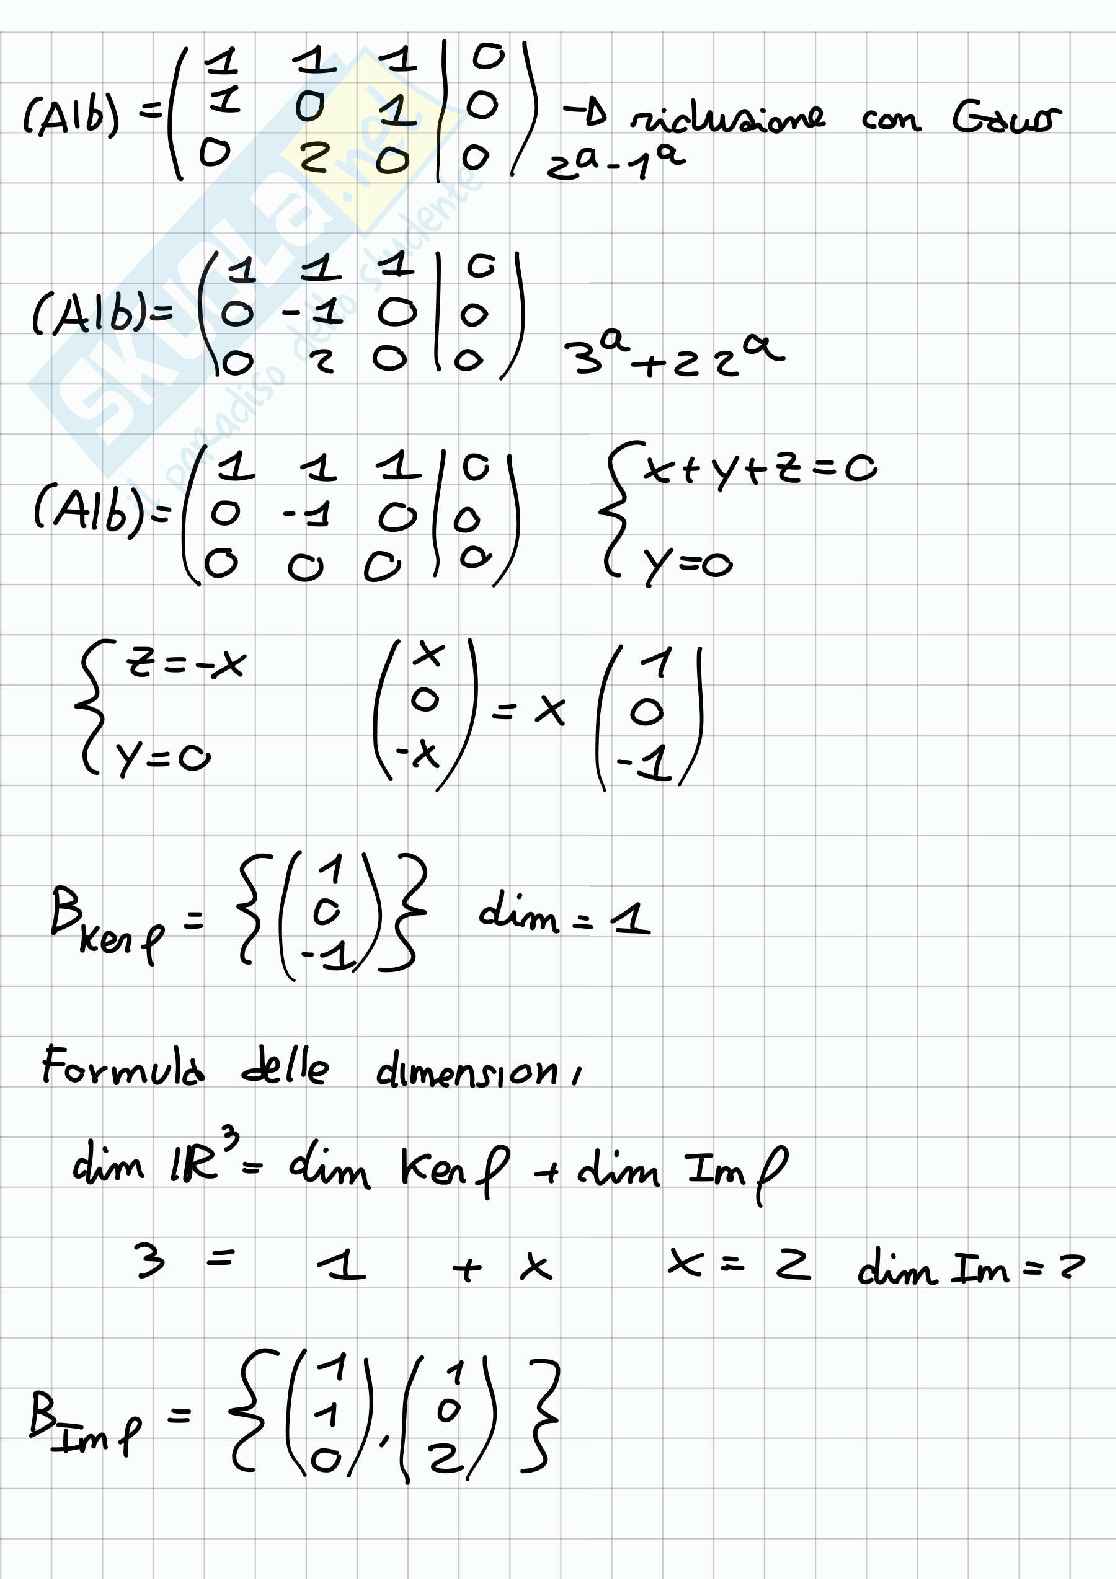 (A|b) = ( 1 1 1 | 0 )
( 1 0 1 | 0 ) → riduzione con Gauss
( 0 2 0 | 0 ) 2ª - 1ª
(A|b) = ( 1 1 1 | 0 )
( 0 -1 0 | 0 )
( 0 2 0 | 0 ) 3ª + 2 2ª
(A|b) = ( 1 1 1 | 0 ) { x+y+z=0
( 0 -1 0 | 0 )
( 0 0 0 | 0 ) y=0
{ z=-x ( x ) ( 1 )
( 0 ) = x ( 0 )
y=0 ( -x ) ( -1 )
B Ker f = { ( 1 0 -1 ) } dim = 1
Formula delle dimensioni
dim ℝ³ = dim Ker f + dim Im f
3 = 1 + x x = 2 dim Im = 2
B Im f = { ( 1 1 0 ), ( 1 0 2 ) }
SKUOLA.net
il paradiso dello studente